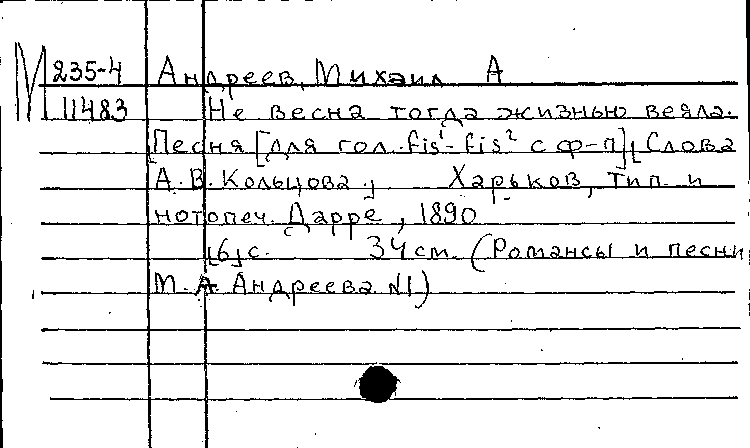 М 235-4 Андреев, Михаил А
11483 Не весна тогда жизнью веяла.
Песня [для гол. fis¹-fis² с ф-п] [Слова
А.В. Кольцова.] Харьков, тип. и
нотопеч. Дарре, 1890
[6] с. 34 см. (Романсы и песни
М.А. Андреева №1)